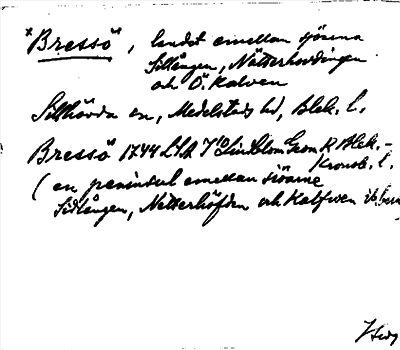 *Bressö, landet emellan sjöarna
Sillången, Nätterhovdingen
och Ö. Kalven
Sillhövda sn, Medelstads hd, Blek. l.
Bressö 1744 LSA Lindblom Geom R Blek.-
Kronob. l.
(en peninsul emellan siöarne
Sillången, Netterhöfden och Kalfwen